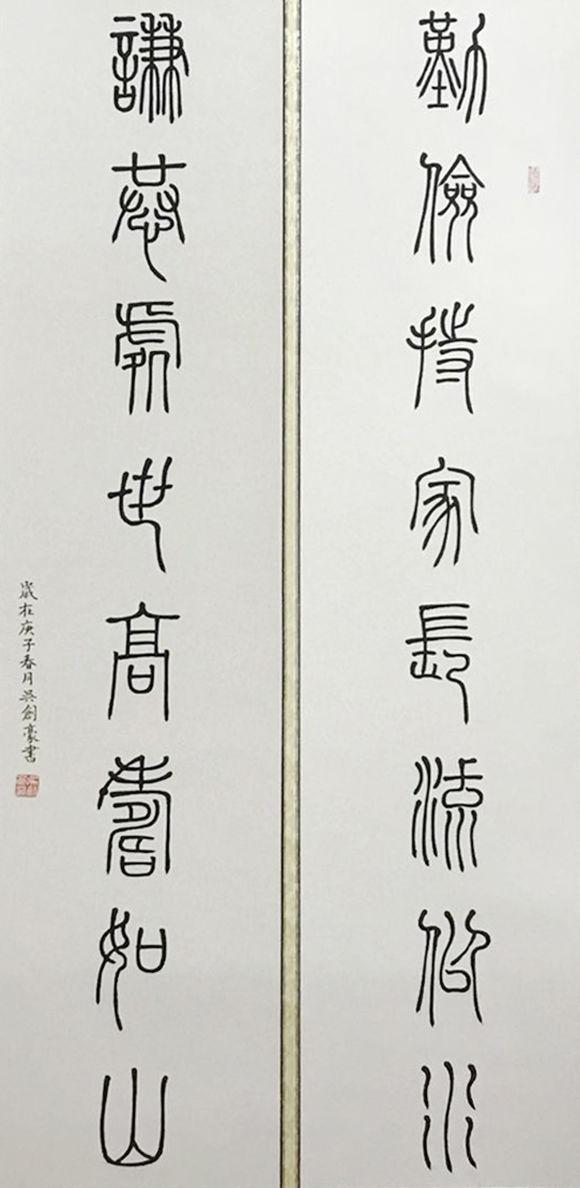 勤儉持家長流似水
謙恭處世高壽如山
歲在庚子春月吳創豪書